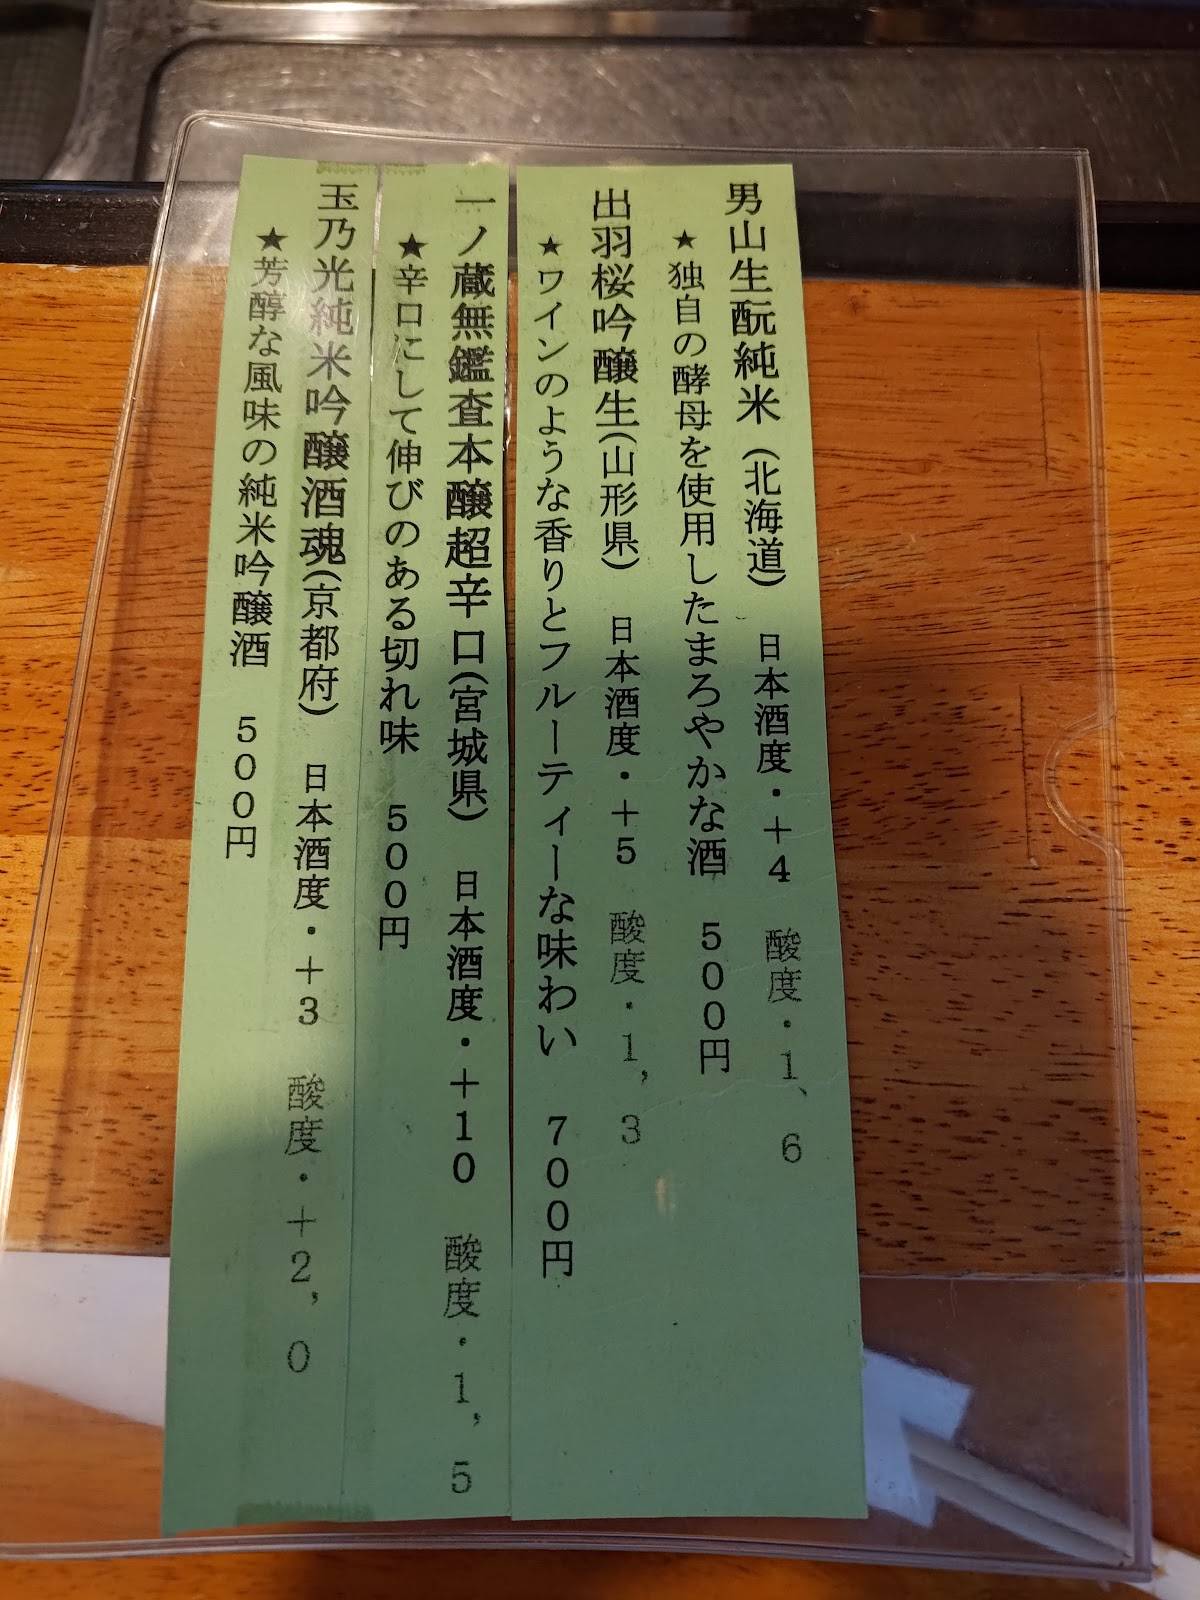 男山生酛純米（北海道） 日本酒度・＋４ 酸度・１、６
★独自の酵母を使用したまろやかな酒 ５００円
出羽桜吟醸生（山形県） 日本酒度・＋５ 酸度・１，３
★ワインのような香りとフルーティーな味わい ７００円
一ノ蔵無鑑査本醸超辛口（宮城県） 日本酒度・＋１０ 酸度・１，５
★辛口にして伸びのある切れ味 ５００円
玉乃光純米吟醸酒魂（京都府） 日本酒度・＋３ 酸度・＋２，０
★芳醇な風味の純米吟醸酒 ５００円